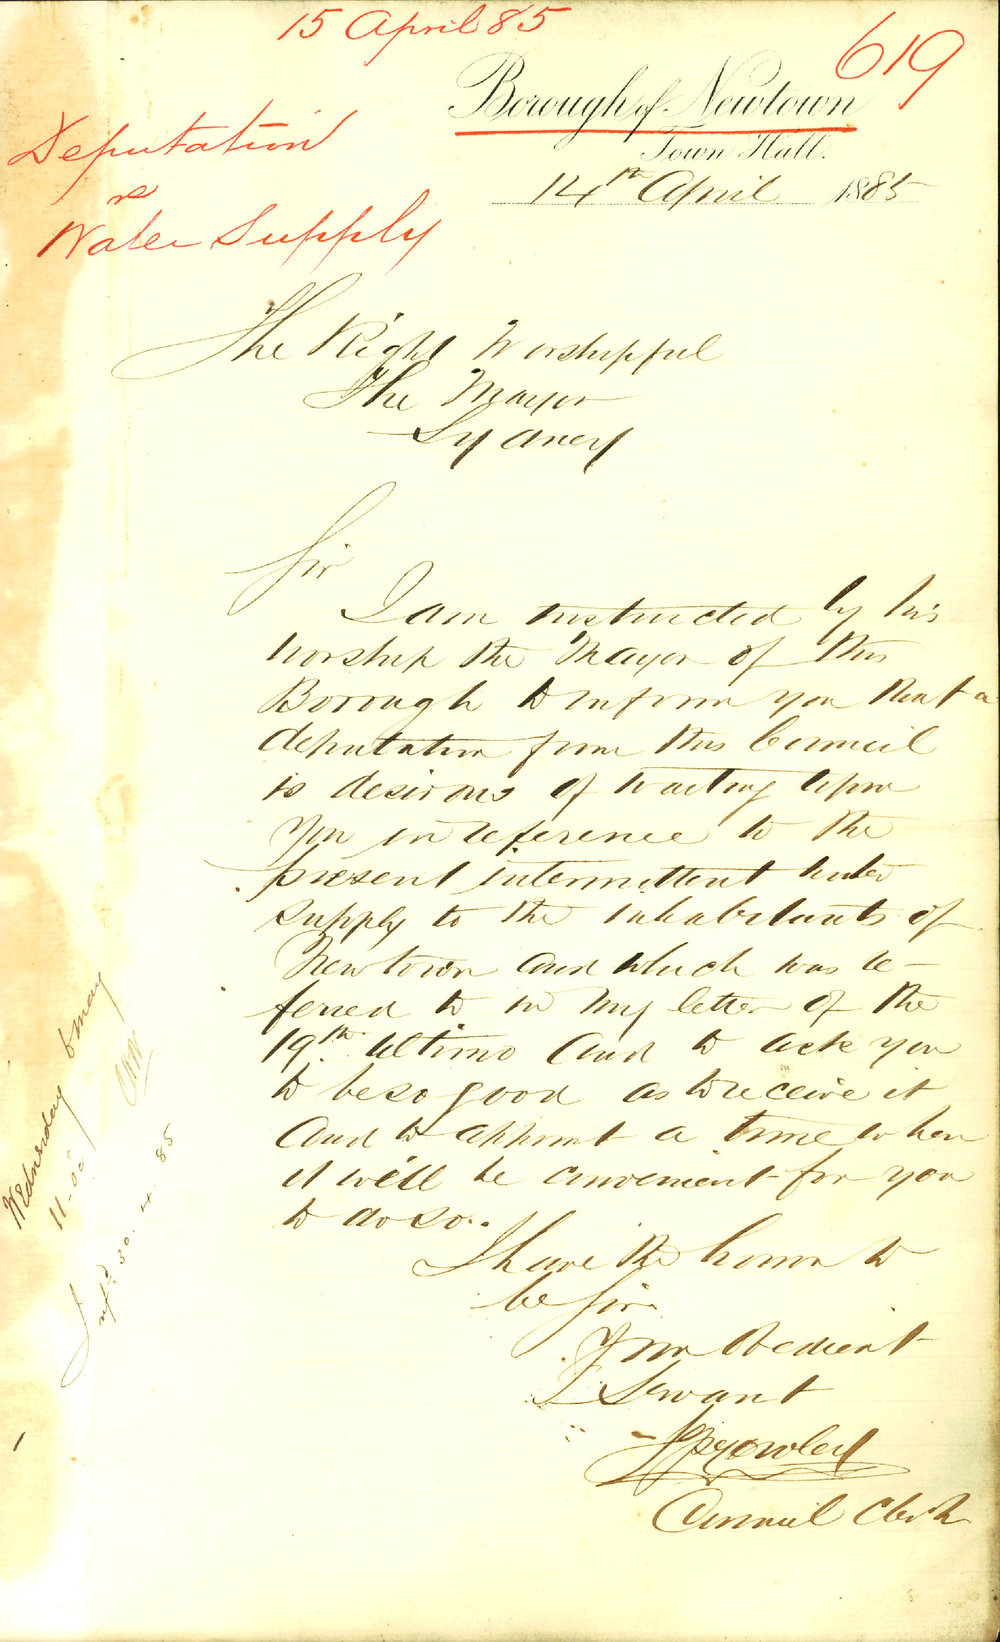 15 April 85
619
Borough of Newtown
Town Hall.
14th April 1885
Deputation
re
Water Supply
The Right Worshipful
The Mayor
Sydney
Sir
I am instructed by his
worship the Mayor of this
Borough to inform you that a
deputation from this Council
is desirous of waiting upon
you in reference to the
present intermittent water
supply to the inhabitants of
Newtown and which was re-
ferred to in my letter of the
19th ultimo and to ask you
to be so good as to receive it
and to appoint a time when
it will be convenient for you
to do so.
I have the honor to
be Sir
Your Obedient
Servant
Council Clerk
Wednesday 6 May
11-00
30.4.85